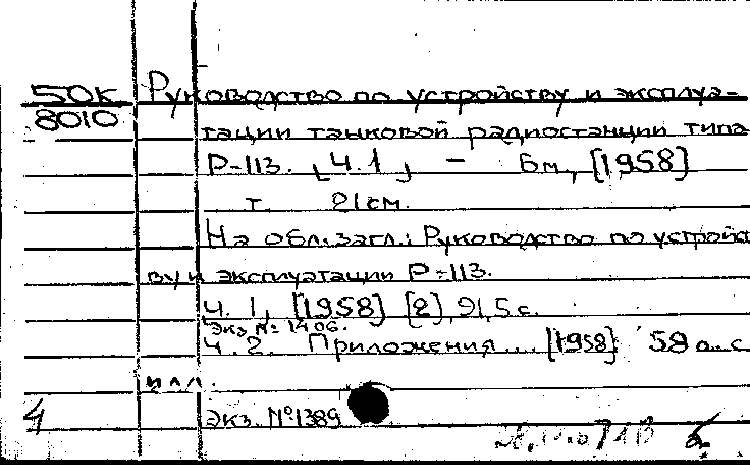 50К
8010
Руководство по устройству и эксплуа-
тации танковой радиостанции типа
Р-113. [Ч.1] - Бм, [1958]
т. 21см.
На обл.загл.: Руководство по устройст
ву и эксплуатации Р-113.
Ч. 1, [1958] [2], 91,5 с.
Экз. № 1406.
Ч. 2. Приложения... [1958] 58 л. с
илл.
4
Экз. №1389